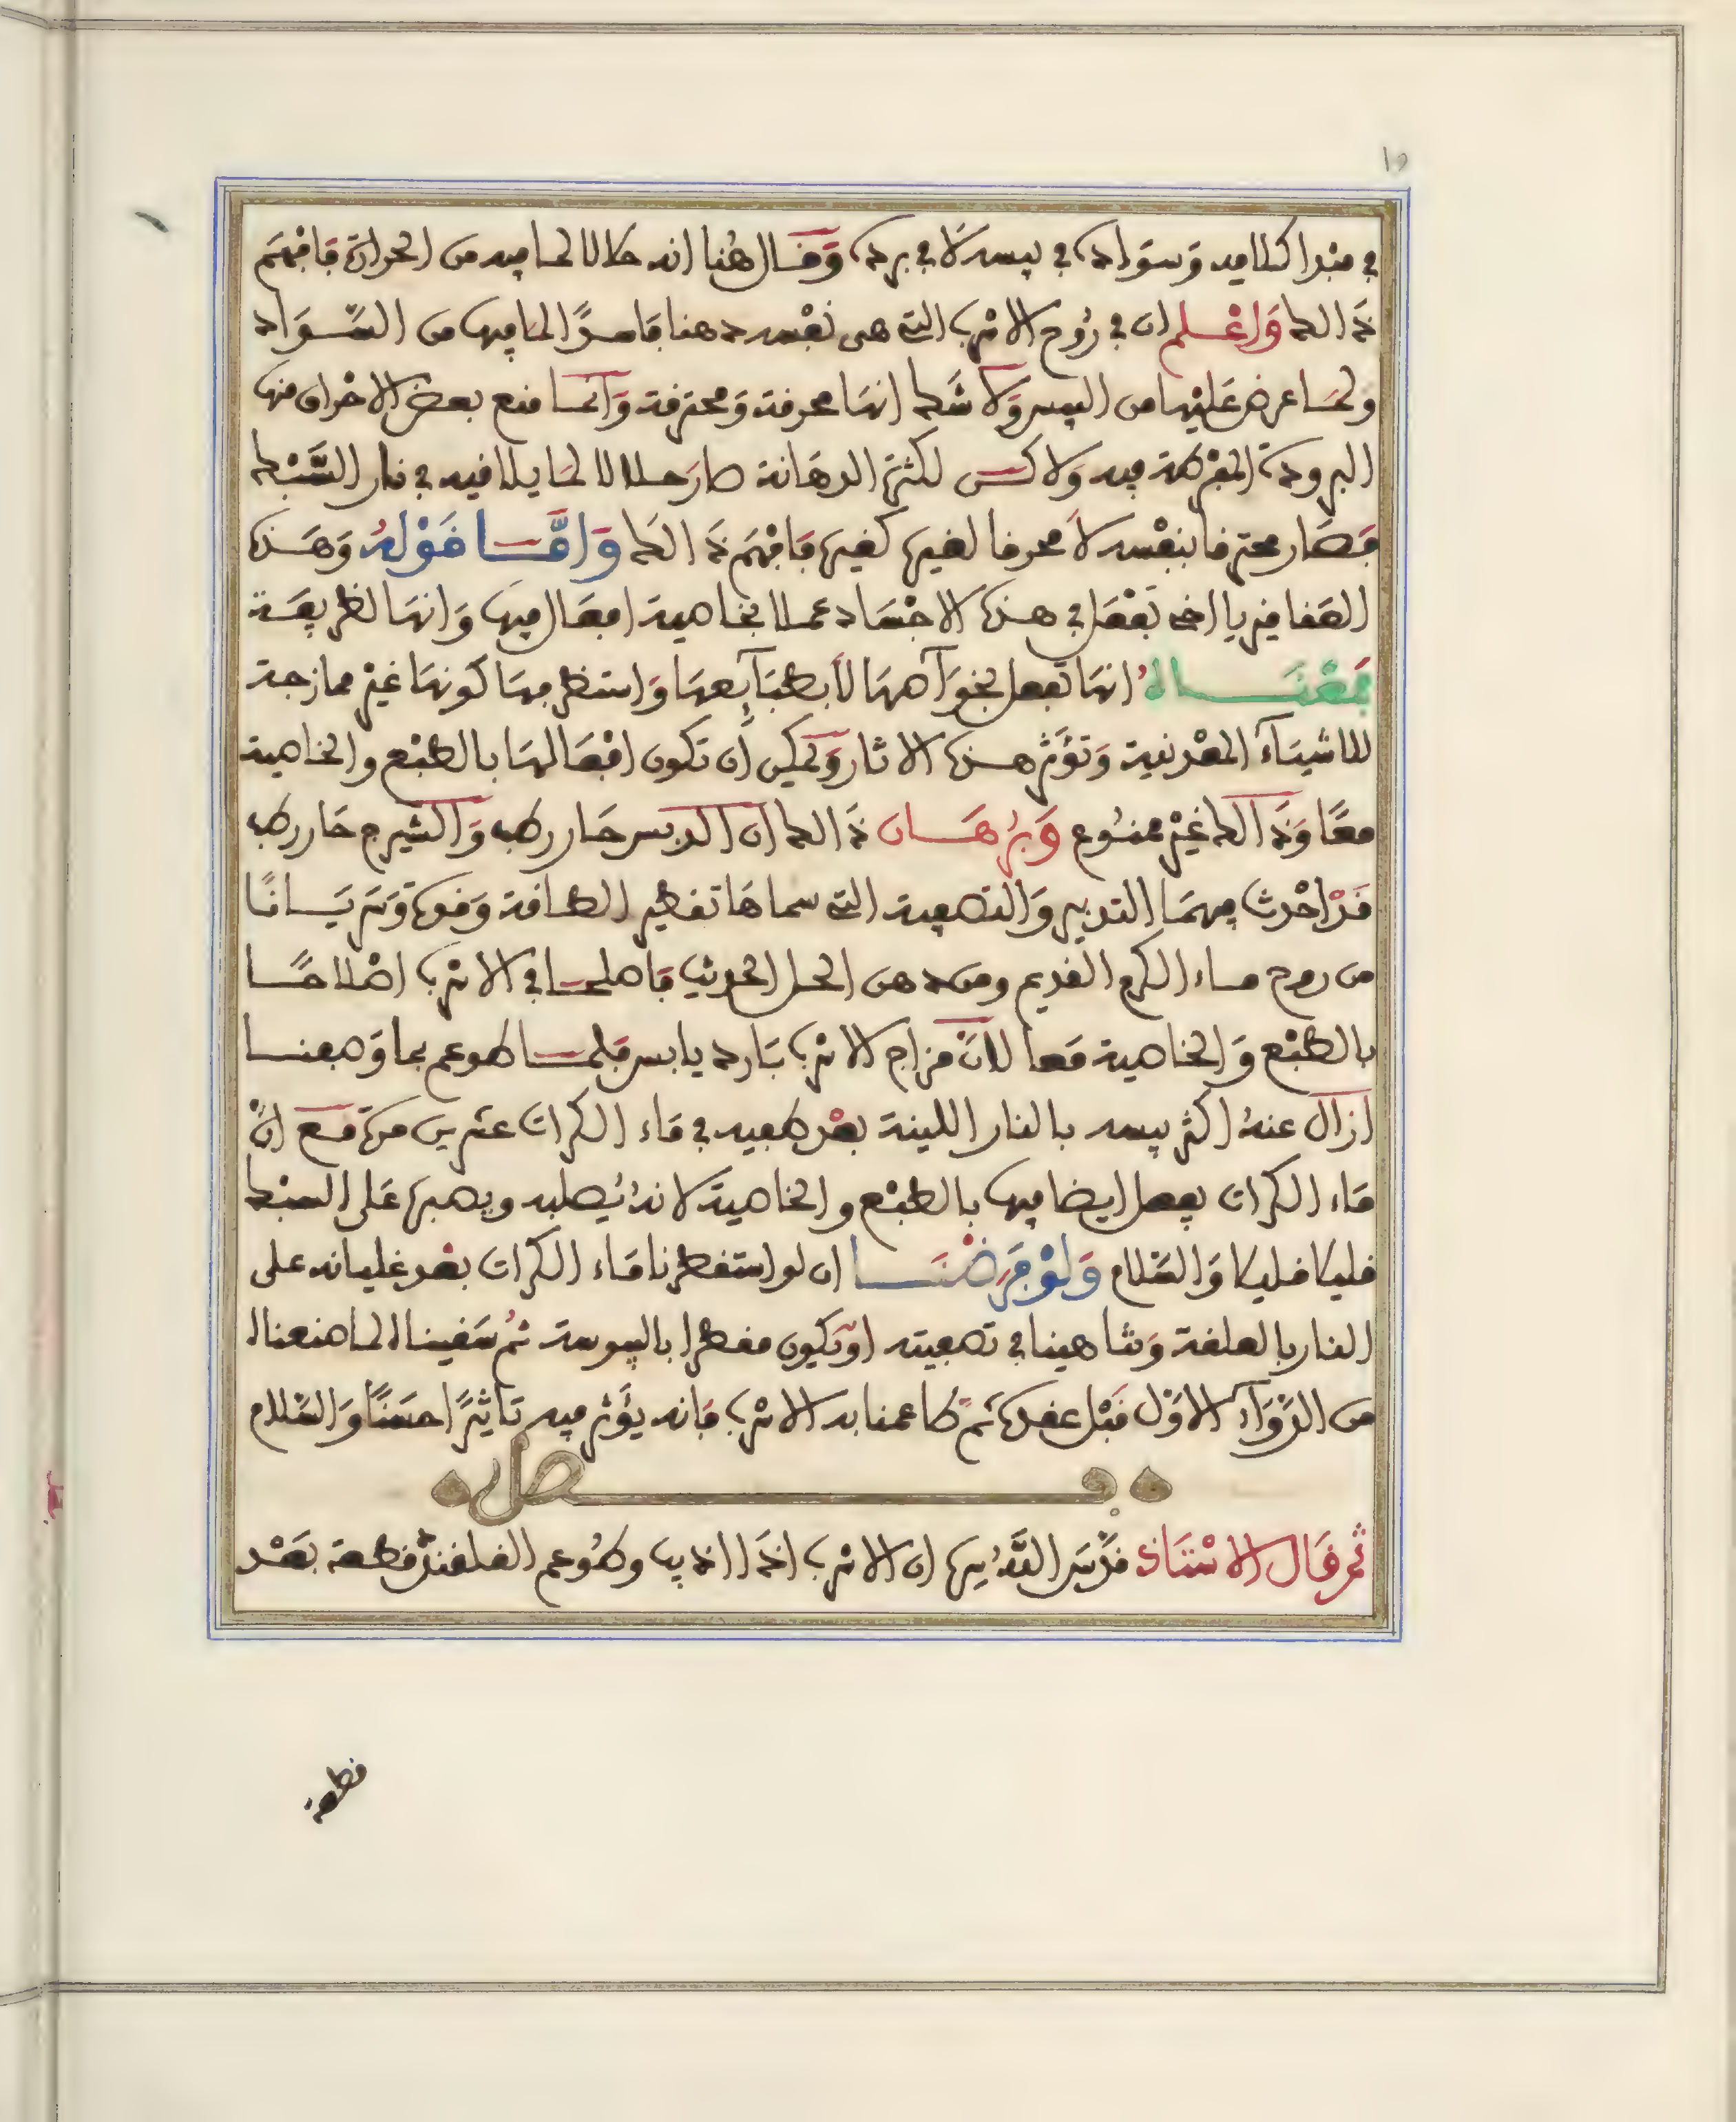 في مبدا كلامه وسواده في يبسه لا في برده وقال هنا انه حلالا لما فيه من الحرارة فافهم
ذالك واعلم ان في روح الانرب التي هي نفسه دهنا قاصرًا لما فيها من السواد
ولما عرض عليها من اليبس ولا شك انها محرقة ومحترقة وانما منع بعض الاحراق منها
البرودة المفرطة فيه ولاكن لكثرة الدهانة صار حلالا لما يلاقيه في نار السبك
فصار محترقا بنفسه لا محرقا لغيره كغيره فافهم ذالك واما قوله وهذه
العقاقير يا اخي تفعل في هذه الاجساد عملا بخاصية افعال فيها وانها لطريقة
فمعناه انها تفعل بخواصها لا بطبايعها واستظرفها كونها غير ممازجة
للاشياء المعدنية وتؤثر هذه الاثار ويمكن أن تكون افعالها بالطبع والخاصية
معًا وذالك غير ممنوع وبرهان ذالك ان الدبس حار رطب والشيرج حار رطب
قد احدث فيهما التدبير والتصفية التي سماها تقطير الطافة وقوة وترياقا
من روح ماء الكرم القديم ومن دهن الحل الحديث فاصلحا في الانرب اصلاحا
بالطبع والخاصية معا لان مزاج الانرب بارد يابس فلما طوعم بما وصفنا
ازال عنهُ اكثر يبسه بالنار اللينة بعد طفيه في ماء الكراث عشرين مرة مع انّ
ماء الكراث يفعل ايضا فيها بالطبع والخاصية لانهُ يُصلبه ويصبره على السبك
قليلا قليلا والسلام ولو فرضنا ان لو استقطرنا ماء الكراث بعد غليانه على
النار بالعلقة وتناهينا في تصفيته او يكون مقطرا باليبوسة ثمُ سقيناه لما صنعناه
من الدوآء الاول قبل عقده ثم طاعمنا به الانرب فانه يؤثر فيه تاثيرًا حسنًا والسلام
فصل
ثم قال الاستاذ قدس الله سره ان الانرب اذا اذيب وطُوعم القلقند قطعة بعد
قطعة